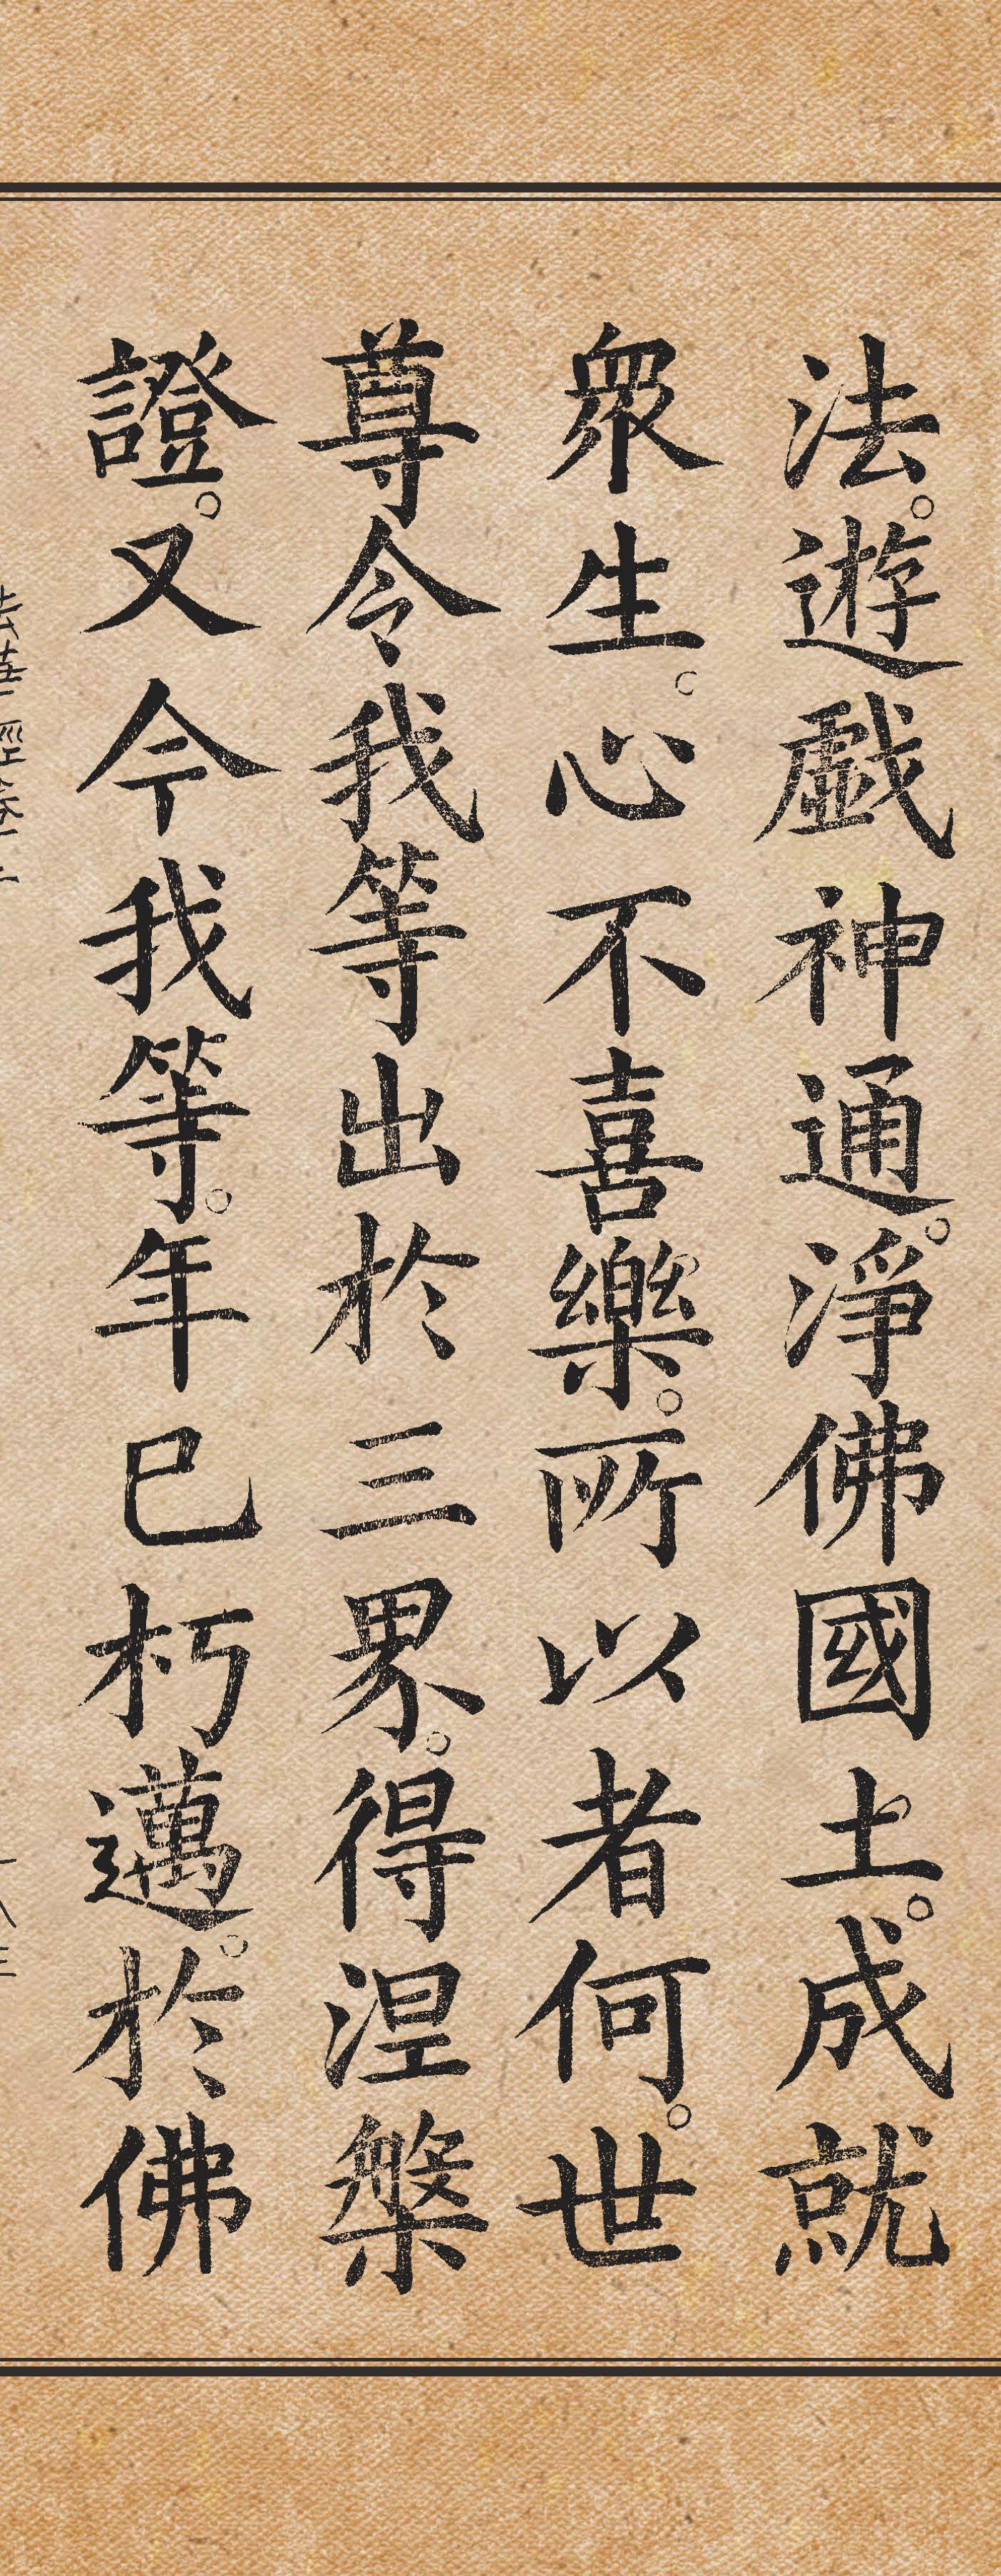 法。遊戲神通。淨佛國土。成就
衆生。心不喜樂。所以者何。世
尊令我等出於三界。得涅槃
證。又今我等。年已朽邁。於佛